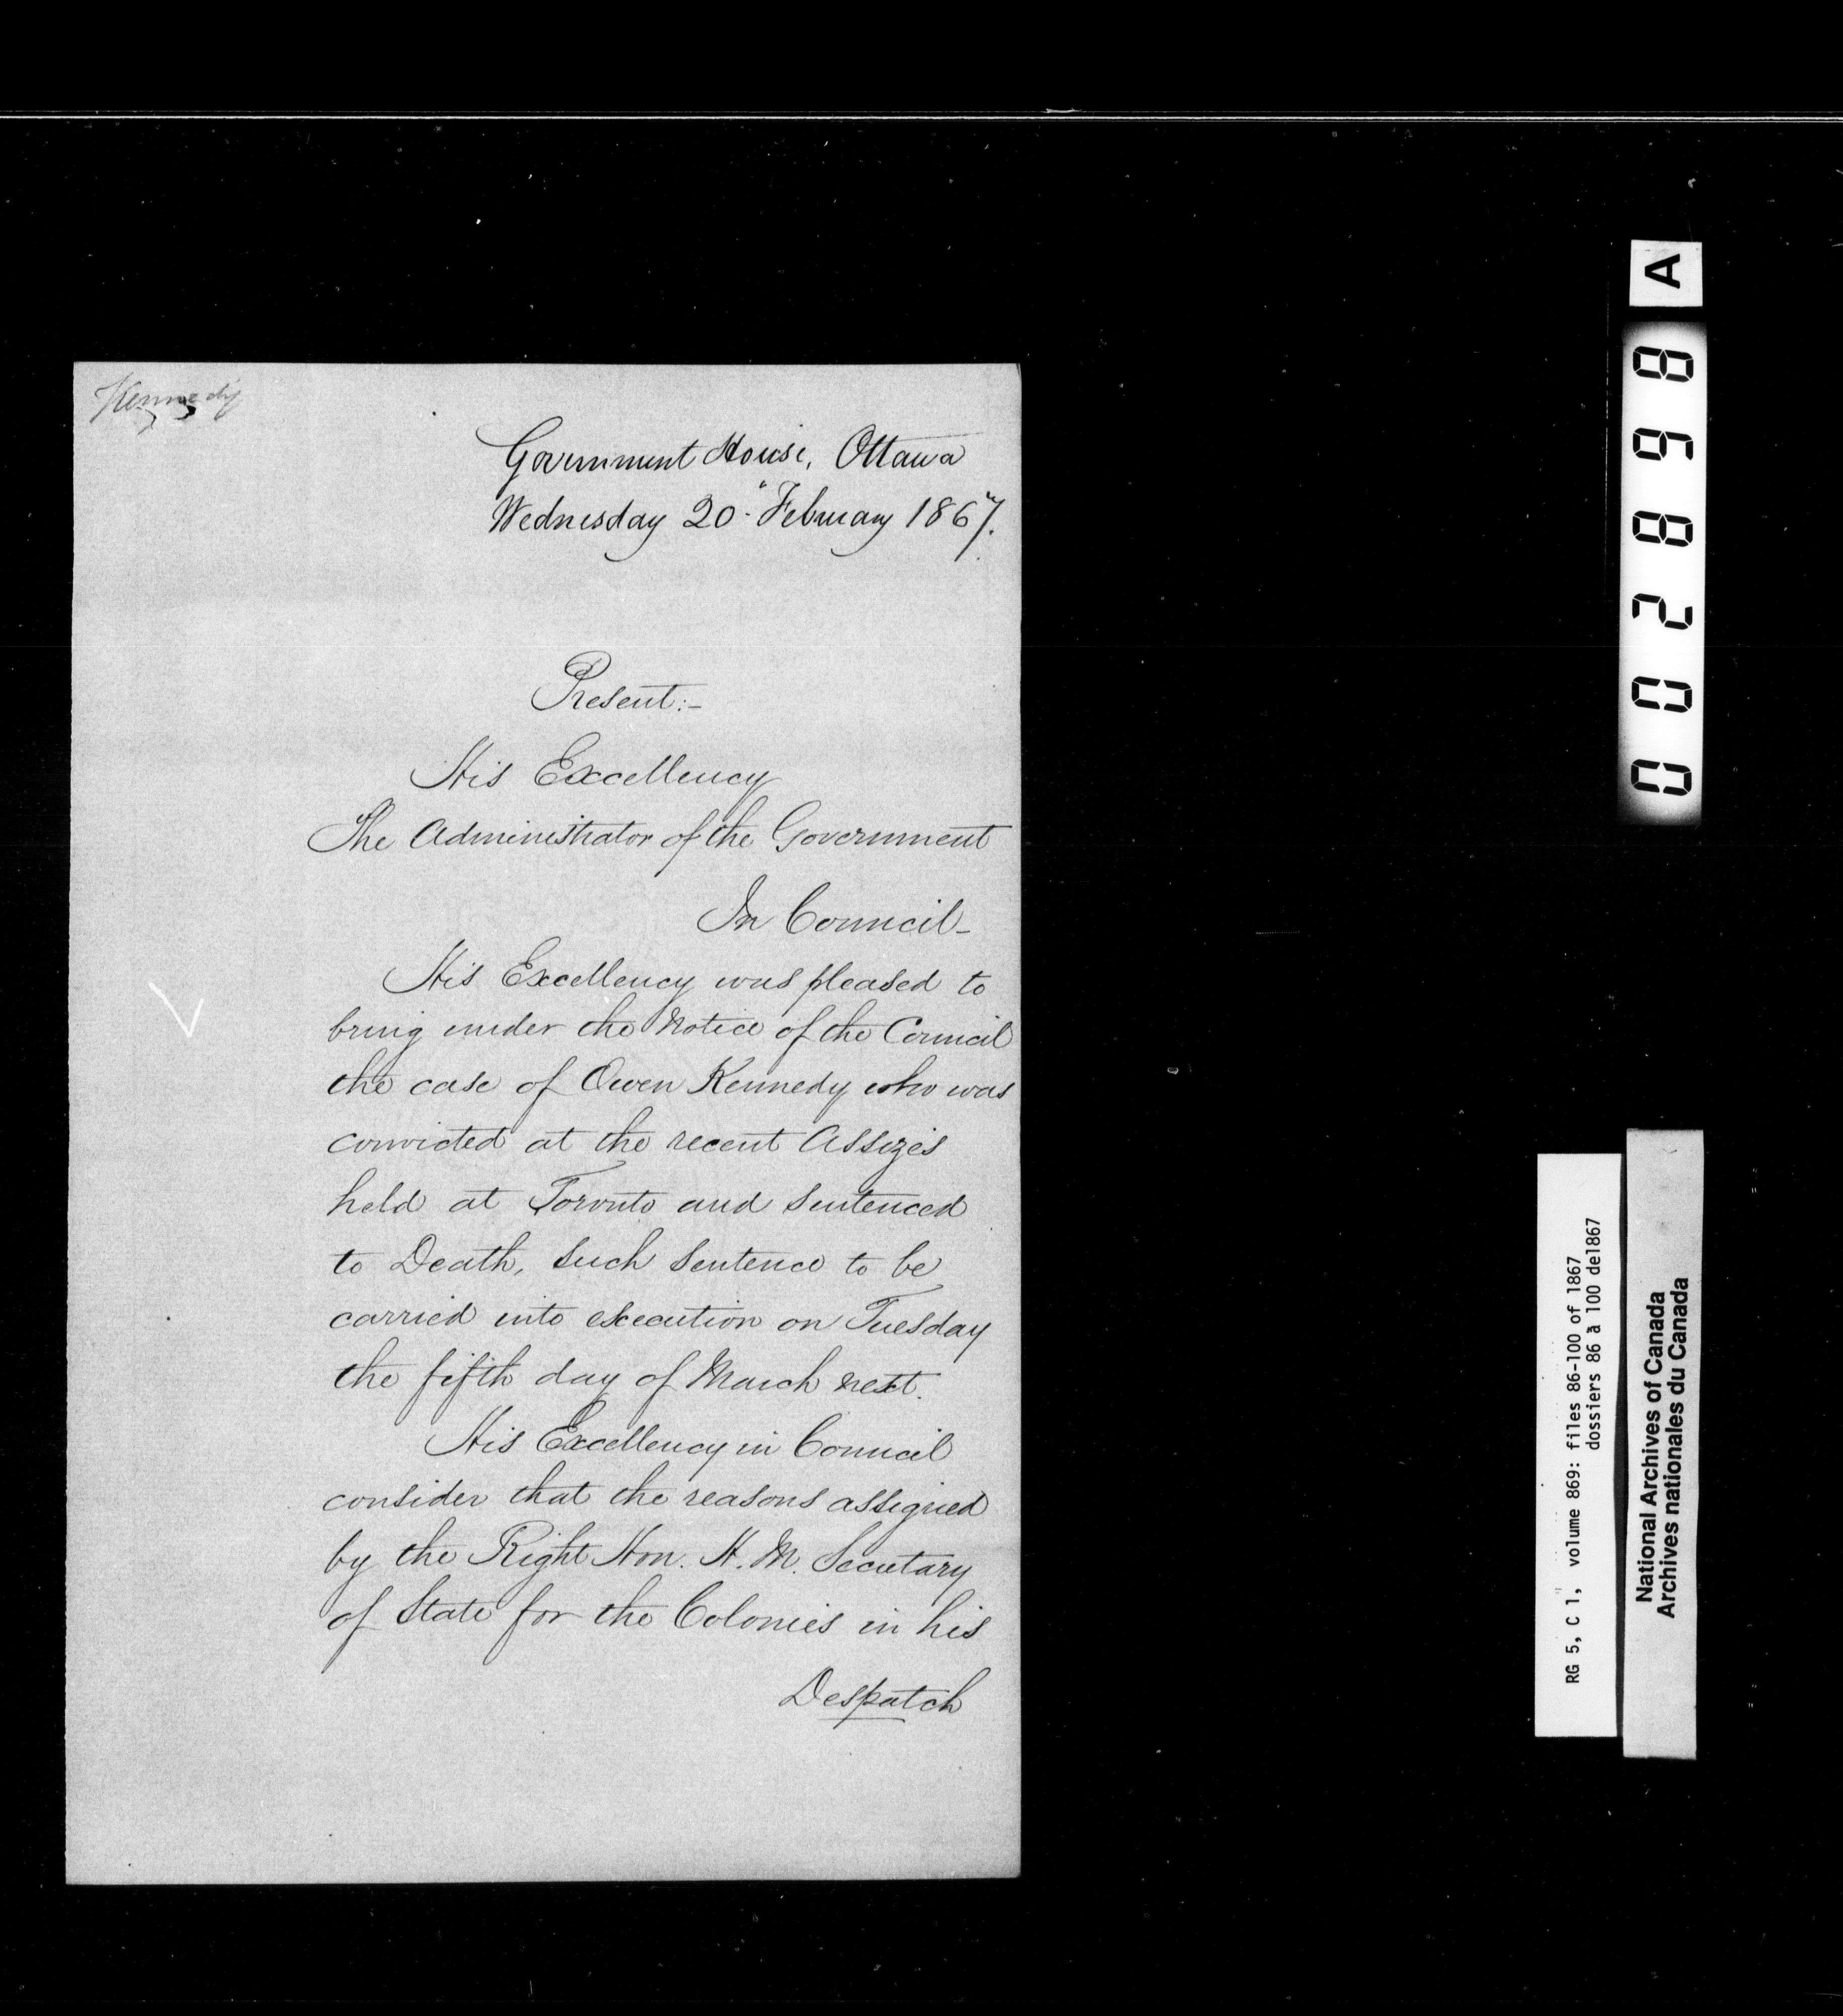 Kennedy
Government House, Ottawa
Wednesday 20" February 1867.
Present:-
His Excellency
The Administrator of the Government
In Council-
His Excellency was pleased to
bring under the Notice of the Council
the case of Owen Kennedy who was
convicted at the recent Assizes
held at Toronto and sentenced
to Death, such sentence to be
carried into execution on Tuesday
the fifth day of March next.
His Excellency in Council
consider that the reasons assigned
by the Right Hon. H. M. Secretary
of State for the Colonies in his
Despatch
002898 A
RG 5, C 1, volume 869: files 86-100 of 1867
dossiers 86 à 100 de1867
National Archives of Canada
Archives nationales du Canada